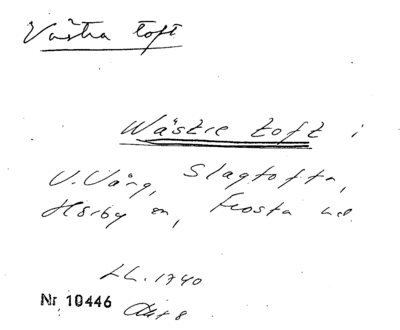 Västra toft
Wästre toft i
V. Vång, Slagtofta,
Hörby sn, Frosta hd.
LL. 1740
Nr 10446 Akt 8